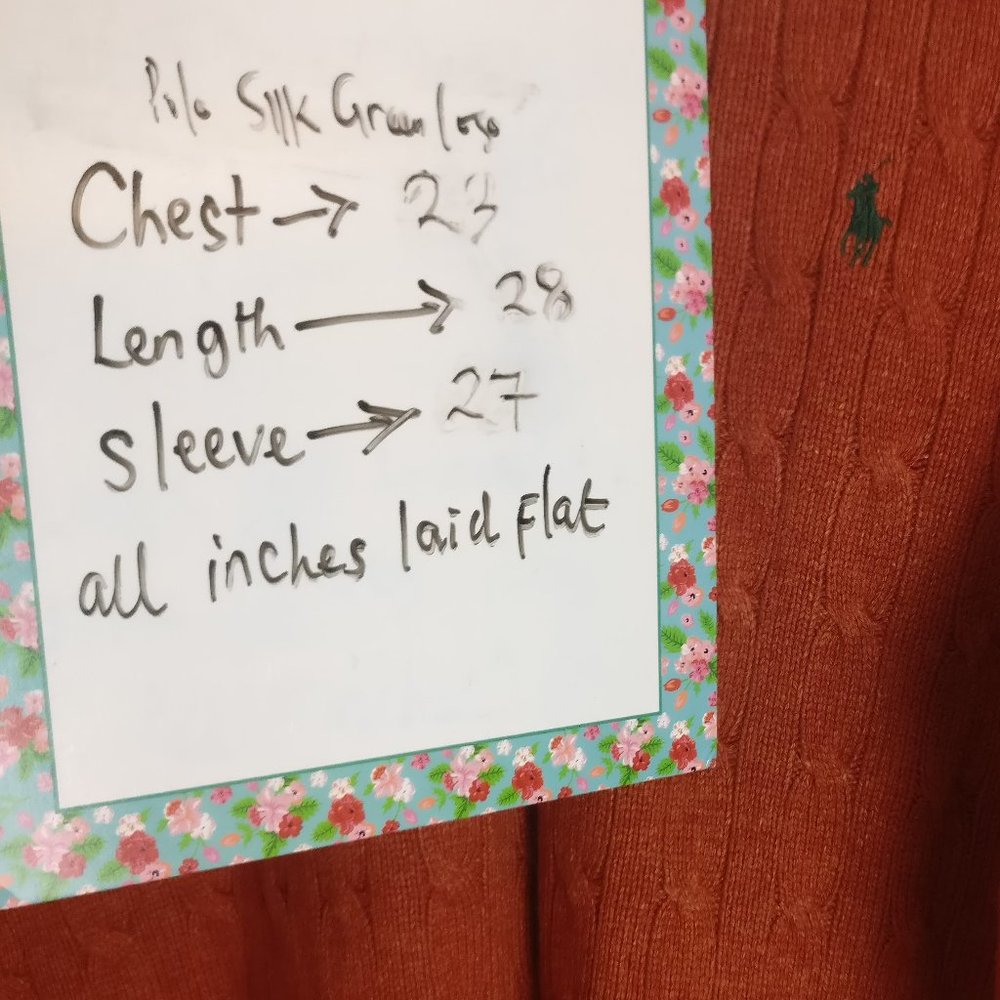 Polo Silk Green logo
Chest → 23
Length → 28
Sleeve → 27
all inches laid flat